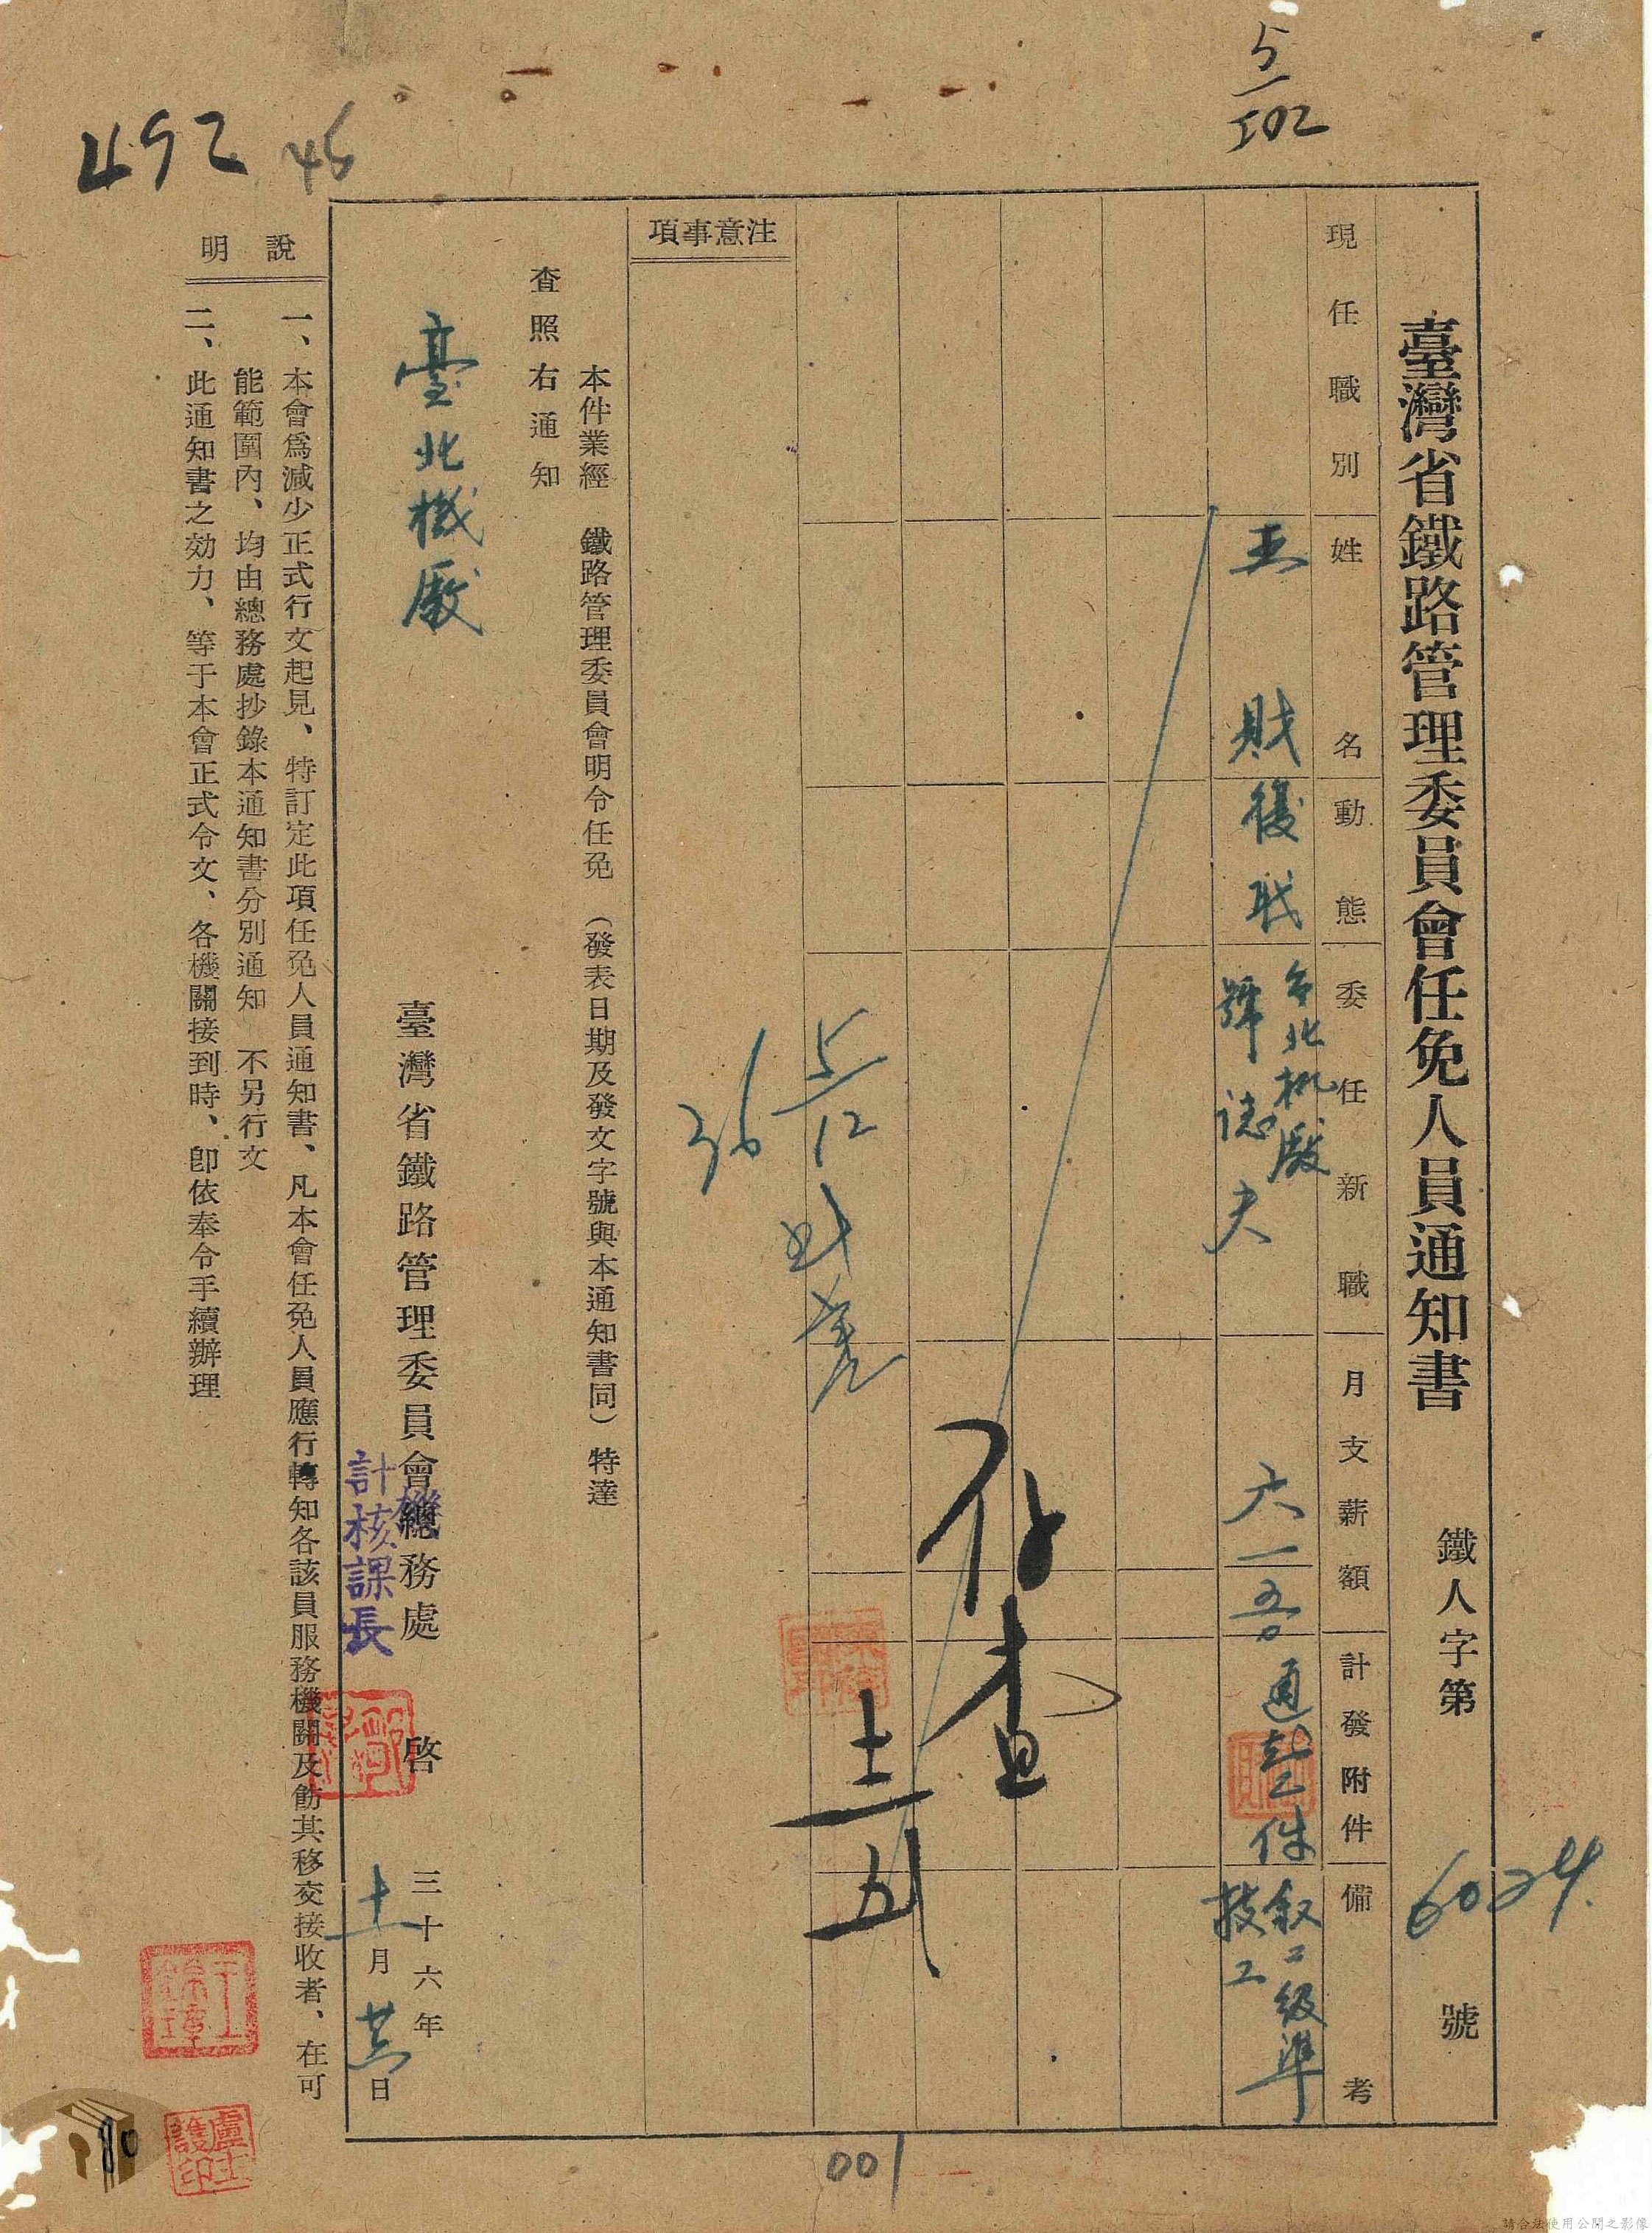 5/502
492 46
臺灣省鐵路管理委員會任免人員通知書 鐵人字第 6024 號
現任職別 姓名 動態 委任新職 月支薪額 計發附件 備考
王 財 復職 台北机廠 號誌夫 六一五 通知乙件 叙工級準技工
存查
十二
注意事項
36 5/12
本件業經 鐵路管理委員會明令任免 (發表日期及發文字號與本通知書同) 特達
查照右通知
臺北機廠
臺灣省鐵路管理委員會總務處 啓 三十六年
計核課長
十一月 日
說明
一、本會爲減少正式行文起見、特訂定此項任免人員通知書、凡本會任免人員應行轉知各該員服務機關及飭其移交接收者、在可
能範圍內、均由總務處抄錄本通知書分別通知 不另行文
二、此通知書之効力、等于本會正式令文、各機關接到時、卽依奉令手續辦理
001
請合法使用公開之影像